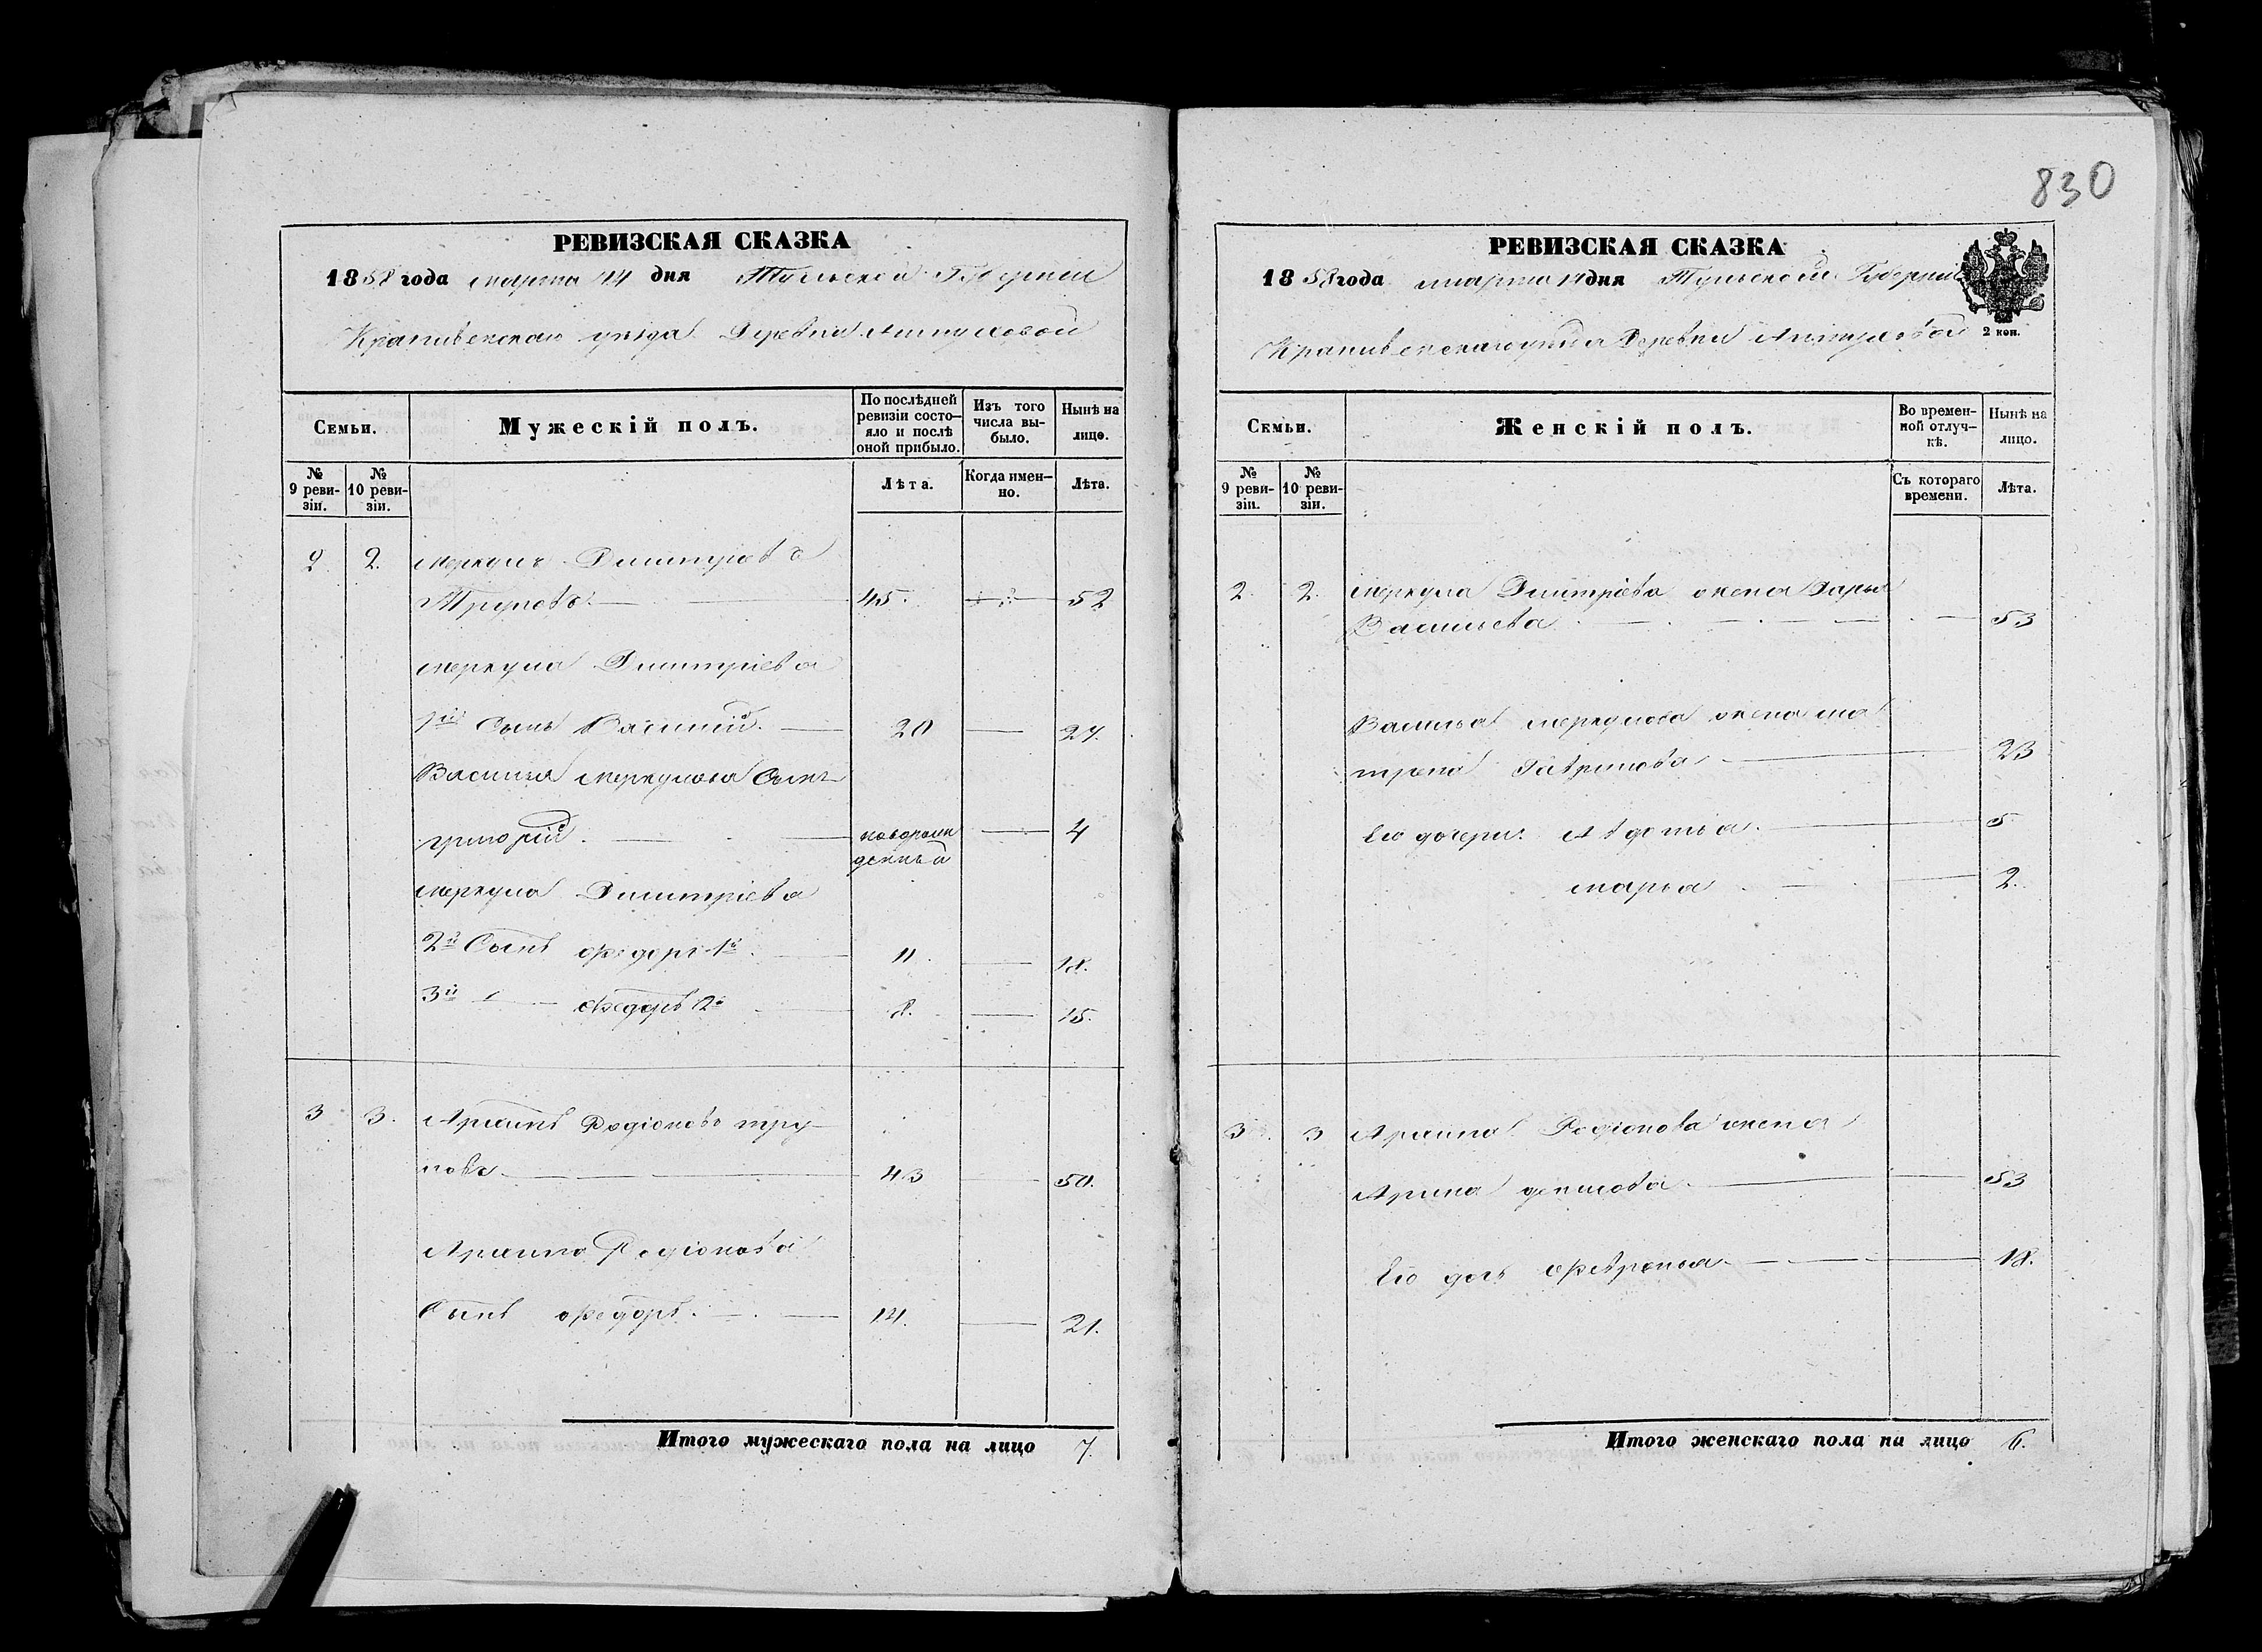 830
РЕВИЗСКАЯ СКАЗКА
1858 года марта 14 дня Тульской Губернии
Крапивенскаго уезда Деревни
Семьи.
Мужескій полъ.
По послѣдней ревизіи состояло и послѣ оной прибыло.
Изъ того числа выбыло.
Нынѣ на лицо.
№ 9 ревизіи.
№ 10 ревизіи.
Лѣта.
Когда именно.
Лѣта.
2 2. Меркулъ Дмитріевъ
Труновъ. 45. 52
Меркула Дмитріева
1й Сынъ Василий. 20 27.
Василья Меркулова Сынъ
григорій. новорож 4
денный
Меркула Дмитріева
2й Сынъ Федоръ 1й. 11. 18.
3й Федоръ 2й 8. 15.
3 3. Родіоновъ тру-
новъ 43 50.
Родіонова
Сынъ Федоръ. 14. 21.
Итого мужескаго пола на лицо 7.
РЕВИЗСКАЯ СКАЗКА
1858 года марта 14 дня Тульской Губерніи
2 коп.
Крапивенскаго уезда Деревни
Семьи.
Женскій полъ.
Во временной отлучкѣ.
Нынѣ на лицо.
№ 9 ревизіи.
№ 10 ревизіи.
Съ котораго времени.
Лѣта.
2. 2. Меркула Дмитріева жена Дарья
Васильева 53
Василья Меркулова жена Ма
трена Гаврилова 23
Его дочери: Авдотья 5
Марья 2.
3. 3 Родіонова жена
Арина денисова. 53
Его дочь Февронья 18.
Итого женскаго пола на лицо 6.